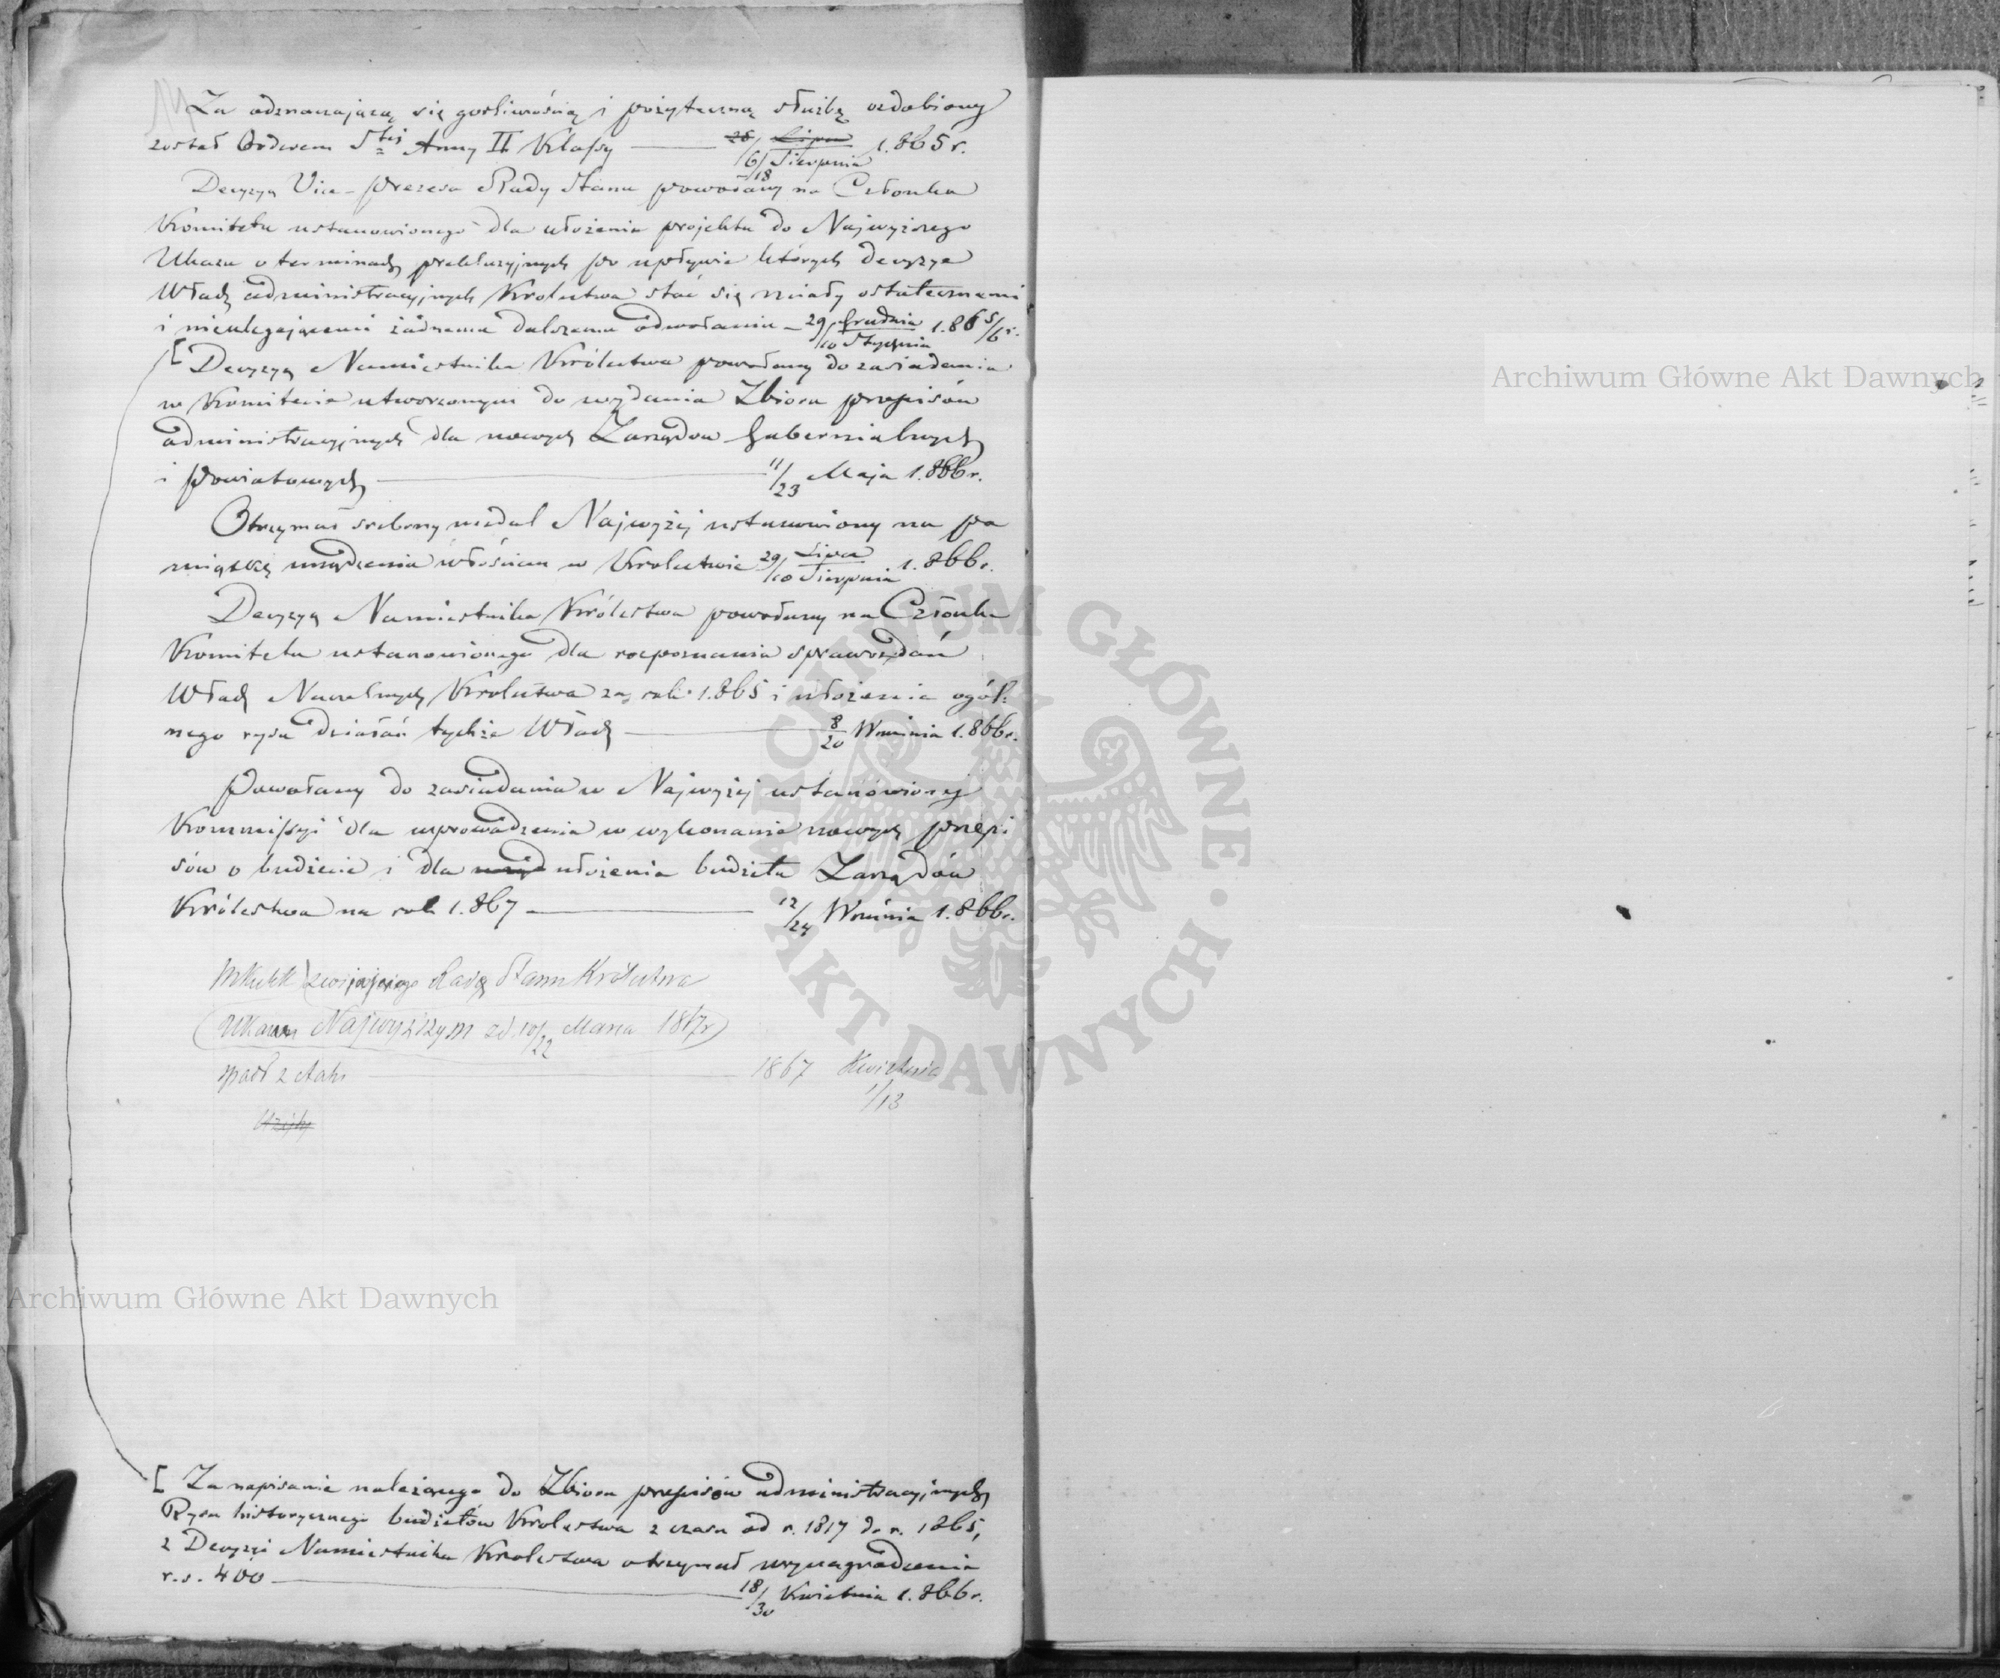 Za odznaczającą się gorliwością i pożyteczną służbę ozdobiony
został Orderem Stej Anny II Klassy — 26/ Lipca 6/18 Sierpnia 1.865 r.
Decyzyą Vice-prezesa Rady Stanu powołany na Członka
Komitetu ustanowionego dla ułożenia projektu do Najwyższego
Ukazu o terminach prekluzyjnych po upływie których decyzye
Władz administracyjnych Królestwa stać się miały ostatecznemi
i nieulegającemi żadnemu dalszemu odwołaniu — 29 Grudnia/10 Stycznia 1.865/6 r.
[ Decyzyą Namiestnika Królestwa powołany do zasiadania
w Komitecie utworzonym do wydania Zbioru przepisów
administracyjnych dla nowych Zarządów Gubernialnych
i Powiatowych — 11/23 Maja 1.866 r.
Otrzymał srebrny medal Najwyżej ustanowiony na pa
miątkę urządzenia włościan w Królestwie 29 Lipca/10 Sierpnia 1.866 r.
Decyzyą Namiestnika Królestwa powołany na Członka
Komitetu ustanowionego dla rozpoznania sprawozdań
Władz Naczelnych Królestwa za rok 1.865 i ułożenia ogól-
nego rysu działań tychże Władz — 8/20 Września 1.866 r.
Powołany do zasiadania w Najwyżej ustanowionej
Kommissyi dla wprowadzenia w wykonanie nowych przepi
sów o budżecie i dla ułożenia budżetu Zarządów
Królestwa na rok 1.867 — 12/24 Września 1.866 r.
Wskutek zwijającego Radę Stanu Królestwa
Ukazu Najwyższym zd. 10/22 Marca 1867 r
spadł z etatu — 1867 Kwietnia
1/13
[ Za napisanie należącego do Zbioru przepisów administracyjnych
Rysu historycznego budżetów Królestwa z czasu od r. 1817 do r. 1865,
z Decyzyi Namiestnika Królestwa otrzymał wynagrodzenia
r.s. 400 — 18/30 Kwietnia 1.866 r.
Archiwum Główne Akt Dawnych
Archiwum Główne Akt Dawnych
ARCHIWUM GŁÓWNE · AKT DAWNYCH ·